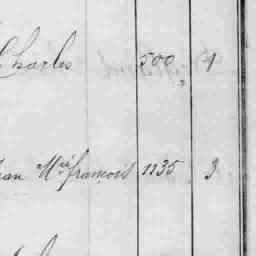 Charles 500 1
ean Mie françois 1135 3